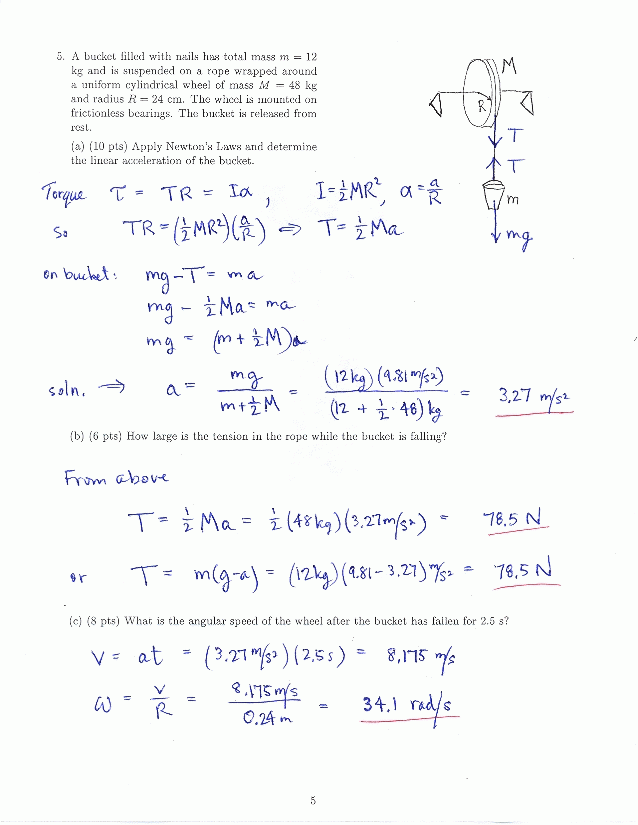 5. A bucket filled with nails has total mass m = 12
kg and is suspended on a rope wrapped around
a uniform cylindrical wheel of mass M = 48 kg
and radius R = 24 cm. The wheel is mounted on
frictionless bearings. The bucket is released from
rest.
M
R
T
T
m
mg
(a) (10 pts) Apply Newton's Laws and determine
the linear acceleration of the bucket.
Torque τ = TR = Iα , I = ½MR², α = a/R
So TR = (½MR²)(a/R) ⇒ T = ½Ma
on bucket: mg - T = ma
mg - ½Ma = ma
mg = (m + ½M)a
soln. ⇒ a = mg / (m + ½M) = (12kg)(9.81 m/s²) / (12 + ½·48) kg = 3.27 m/s²
(b) (6 pts) How large is the tension in the rope while the bucket is falling?
From above
T = ½Ma = ½(48kg)(3.27m/s²) = 78.5 N
or T = m(g-a) = (12kg)(9.81-3.27) m/s² = 78.5 N
(c) (8 pts) What is the angular speed of the wheel after the bucket has fallen for 2.5 s?
V = at = (3.27 m/s²)(2.5s) = 8.175 m/s
ω = V/R = 8.175 m/s / 0.24 m = 34.1 rad/s
5